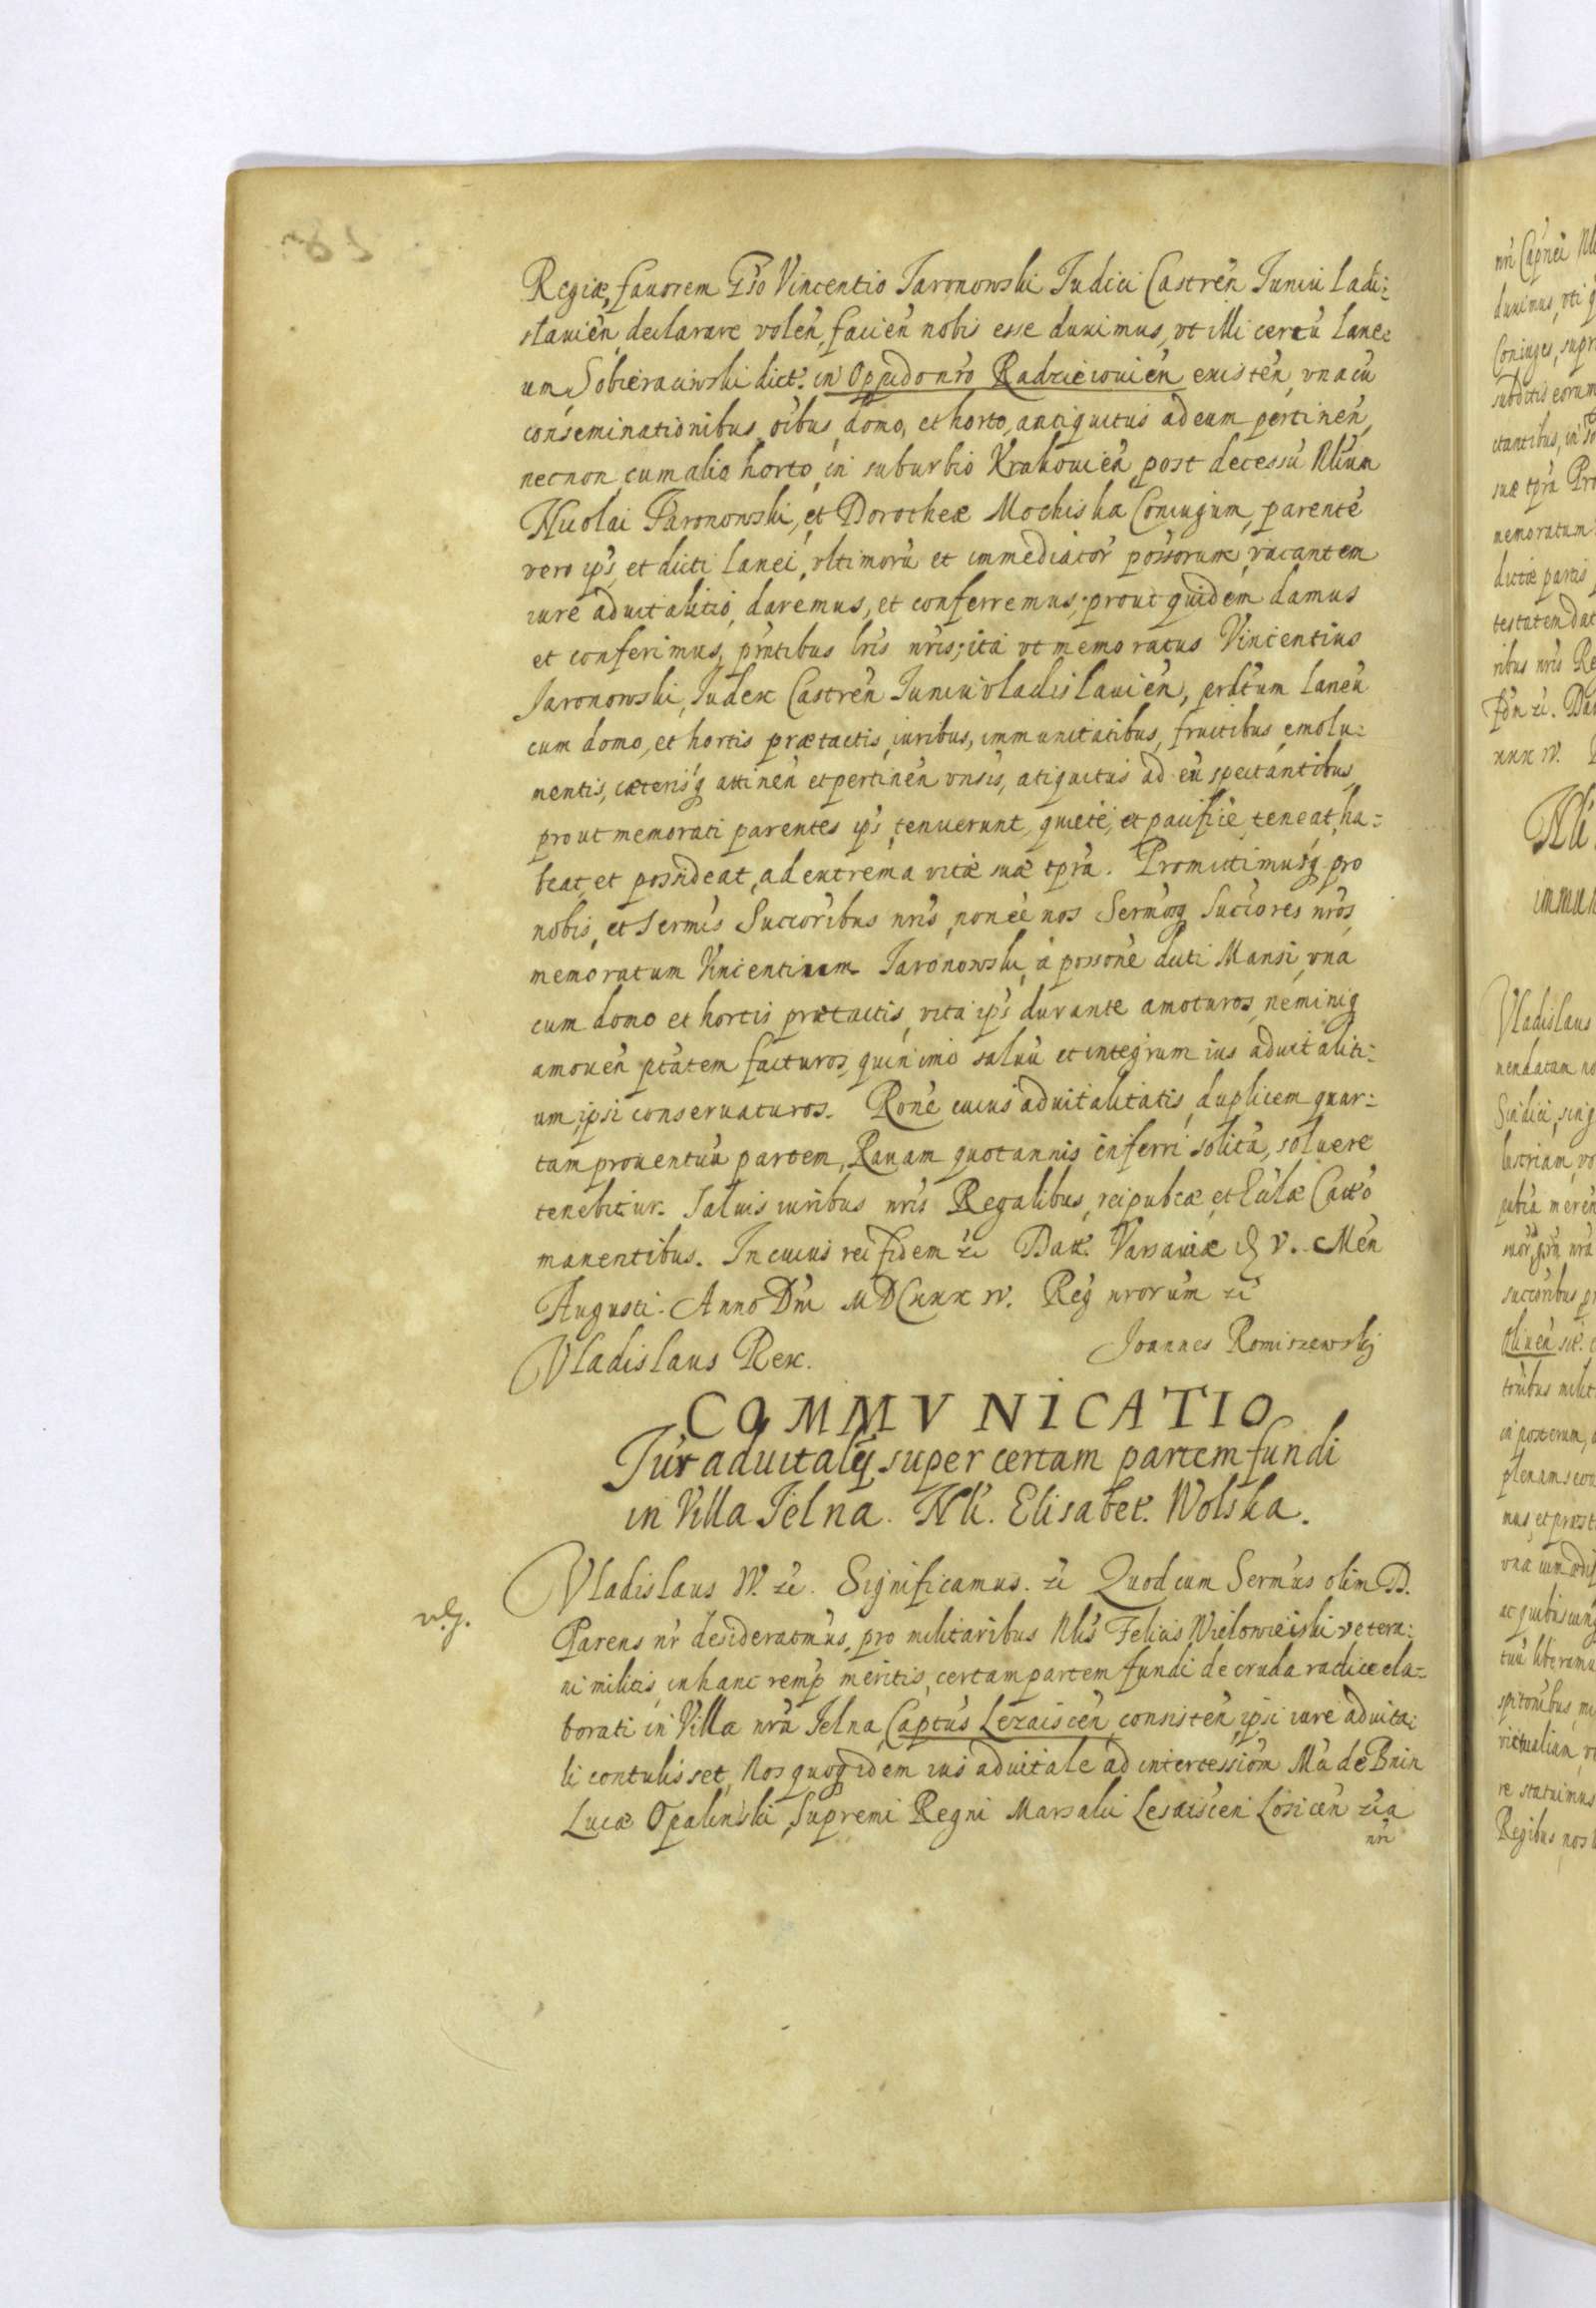 Regiæ, fauorem Gñso Vincentio Jaronowski Judici Castreñ Juniu ladi:
slauień, declarare voleń, facień nobis esse duximus, vt illi certũ lane:
um Sobieraiowski dict: in Oppido nr̃o Radzieiouień existeń, vna cũ
conseminationibus oĩbus, domo, et horto, antiquitus ad eam pertineñ,
nec non, cum alio horto, in suburbio Krakouień, post decessũ Nlium
Nicolai Jaronowski, et Dorotheæ Mochiska Coniugum, parentẽ
vero ip̃s, et dicti lanei, vltimorũ et immediator̃ possorum, vacantem
iure aduitalitio, daremus, et conferremus; prout quidem damus
et conferimus, pr̃ntibus lr̃is nr̃is; ita vt memoratus Vincentius
Jaronowski, Judex Castreñ Juniuvladislauień, prdc̃tum laneũ
cum domo, et hortis prætactis, iuribus, immunitatibus, fructibus emolu:
mentis, cæterisq́ attineñ et pertineñ vnsis, atiquitus ad eũ spectantibus,
prout memorati parentes ip̃s, tenuerunt, quietè, et pacificè, teneat, ha:
beat, et possideat, ad extrema vitæ suæ tp̃ra. Promittimusq́ pro
nobis, et Sermis Succoribus nr̃is, non eẽ nos Sermosq́ Succores nr̃os,
memoratum Vincentium Jaronowski, à possonè dicti Mansi, vna
cum domo et hortis prætactis, vita ip̃s durante amoturos, neminiq́
amoueñ ptãtem facturos, quin imò saluũ et integrum ius aduitaliti:
um, ipsi conseruaturos. Ronẽ cuius aduitalitatis, duplicem quar:
tam prouentuũ partem, Rauam quotannis inferri solitã, soluere
tenebitur. Saluis iuribus nr̃is Regalibus, reipubcæ, et Ecc̃læ Catt̃o
manentibus. In cuius rei fidem &c̃ Datt. Varsauiæ d. V. Meñ
Augusti. Anno Dñi MDCXXX IV. Reg̃ nrorum &c̃
Vladislaus Rex. Joannes Romiszewskj
COMMVNICATIO
Jur̃ aduitalỹ super certam partem fundi
in Villa Jelna. Nli. Elisabet. Wolska.
v.g.
Vladislaus IV. &c̃. Significamus. &c̃ Quod cum Sermus olim D.
Parens nr̃ desideratmus, pro militaribus Nlis Felicis Wielowieiski vetera:
ni militis, in hanc remp̃ meritis, certam partem fundi de cruda radice ela:
borati in Villa nr̃a Jelna, Captus Lezaisceñ, consisteñ, ipsi iure aduita:
li contulisset, Nos quoq́ idem ius aduitale ad intercessiom̃ Mci de Bnin
Lucæ Opalinski, Supremi Regni Marsalci Lesaisceñ Losiceñ &c̃ a
nr̃i